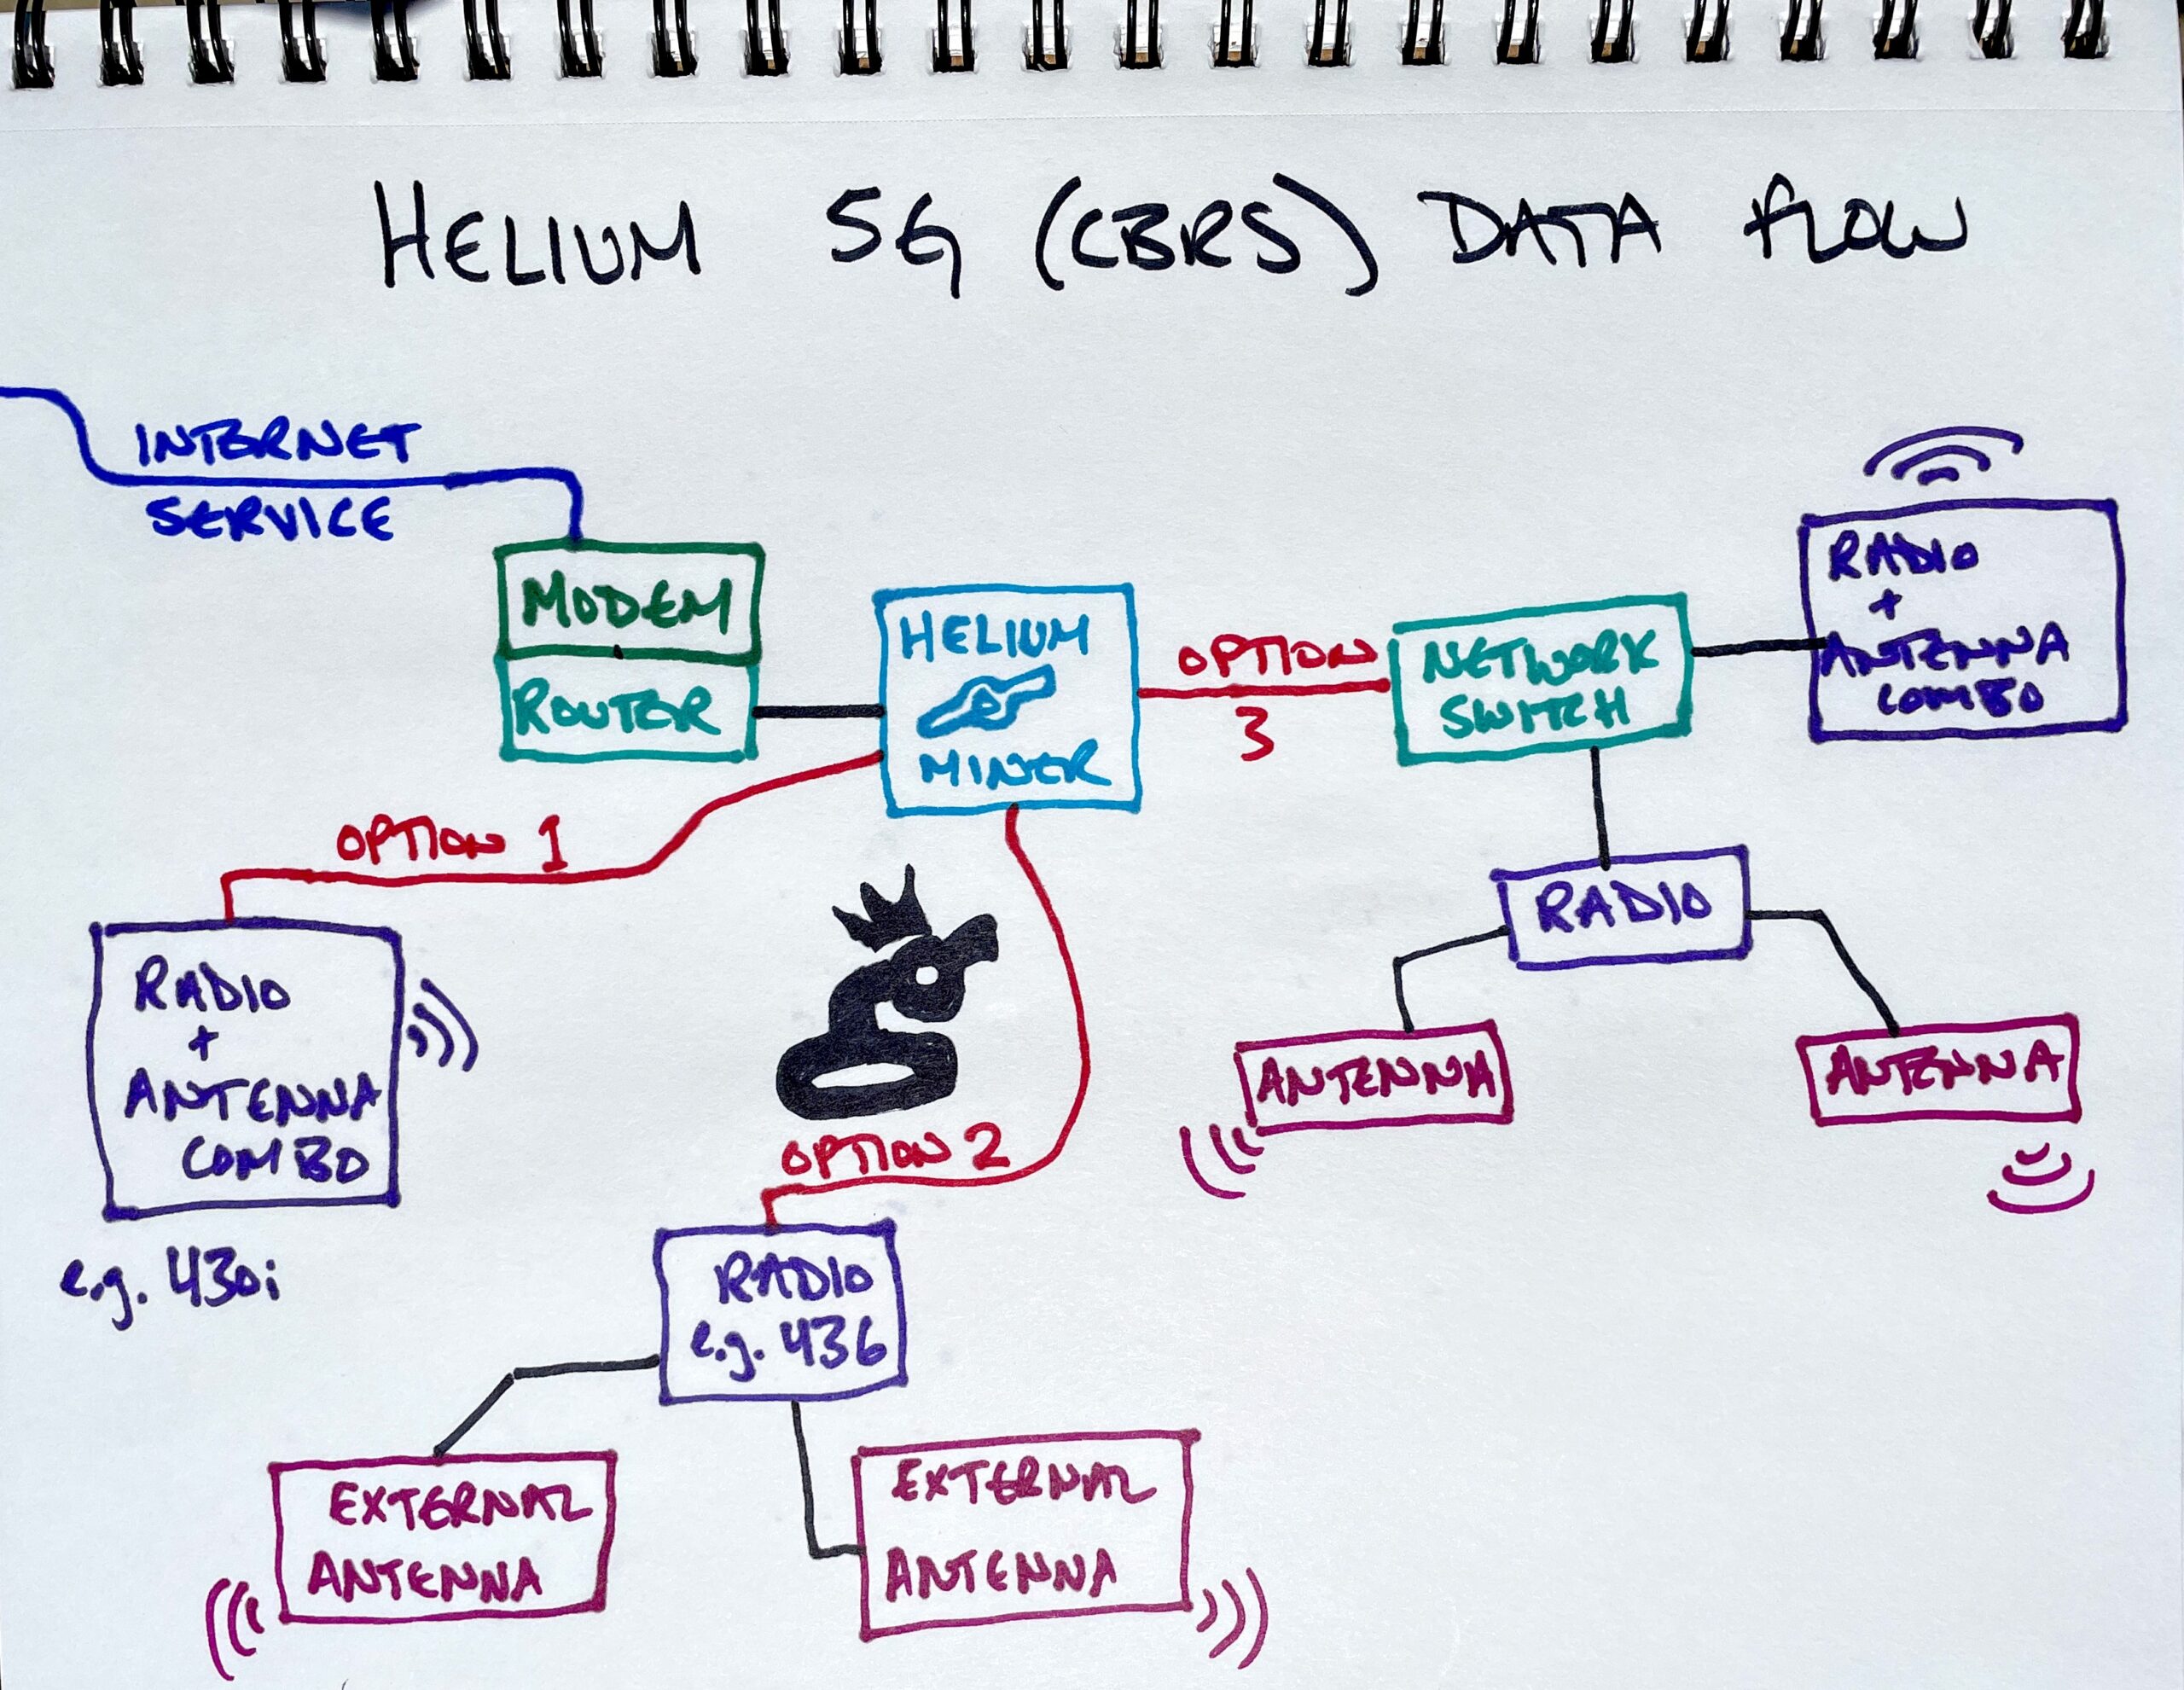 HELIUM 5G (CBRS) DATA FLOW
INTERNET
SERVICE
MODEM
ROUTER
HELIUM
MINER
OPTION
3
NETWORK
SWITCH
RADIO
+
ANTENNA
COMBO
OPTION 1
RADIO
+
ANTENNA
COMBO
e.g. 430i
OPTION 2
RADIO
e.g. 436
EXTERNAL
ANTENNA
EXTERNAL
ANTENNA
RADIO
ANTENNA
ANTENNA